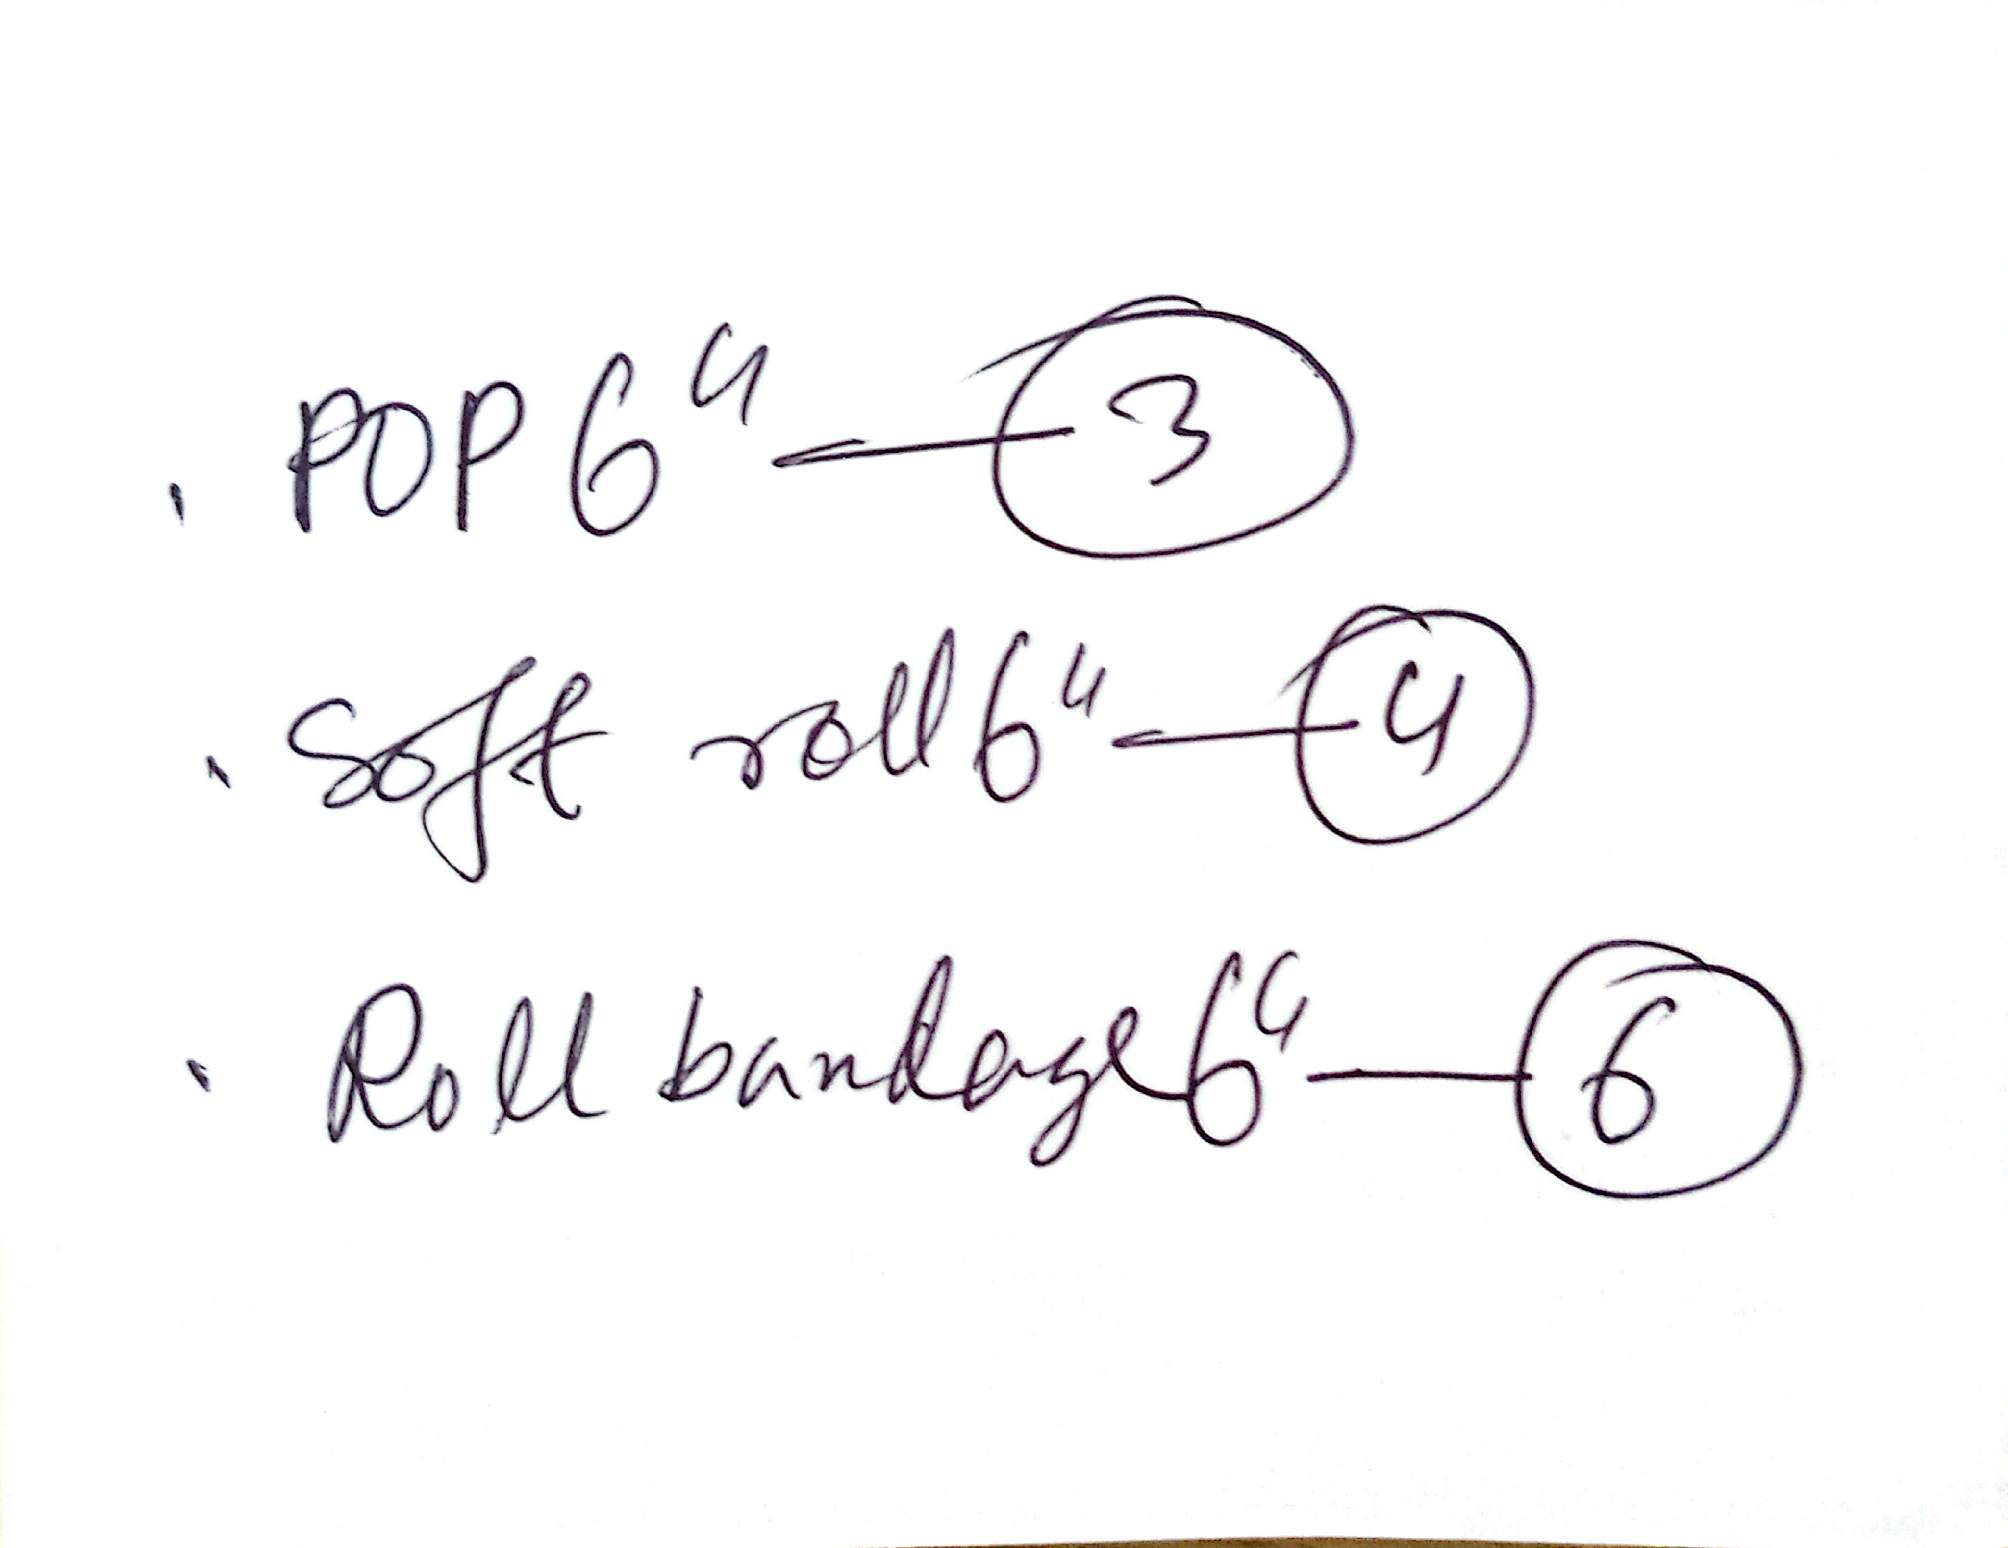 . POP 6" — 3
. Soft roll 6" — 4
. Roll bandage 6" — 6